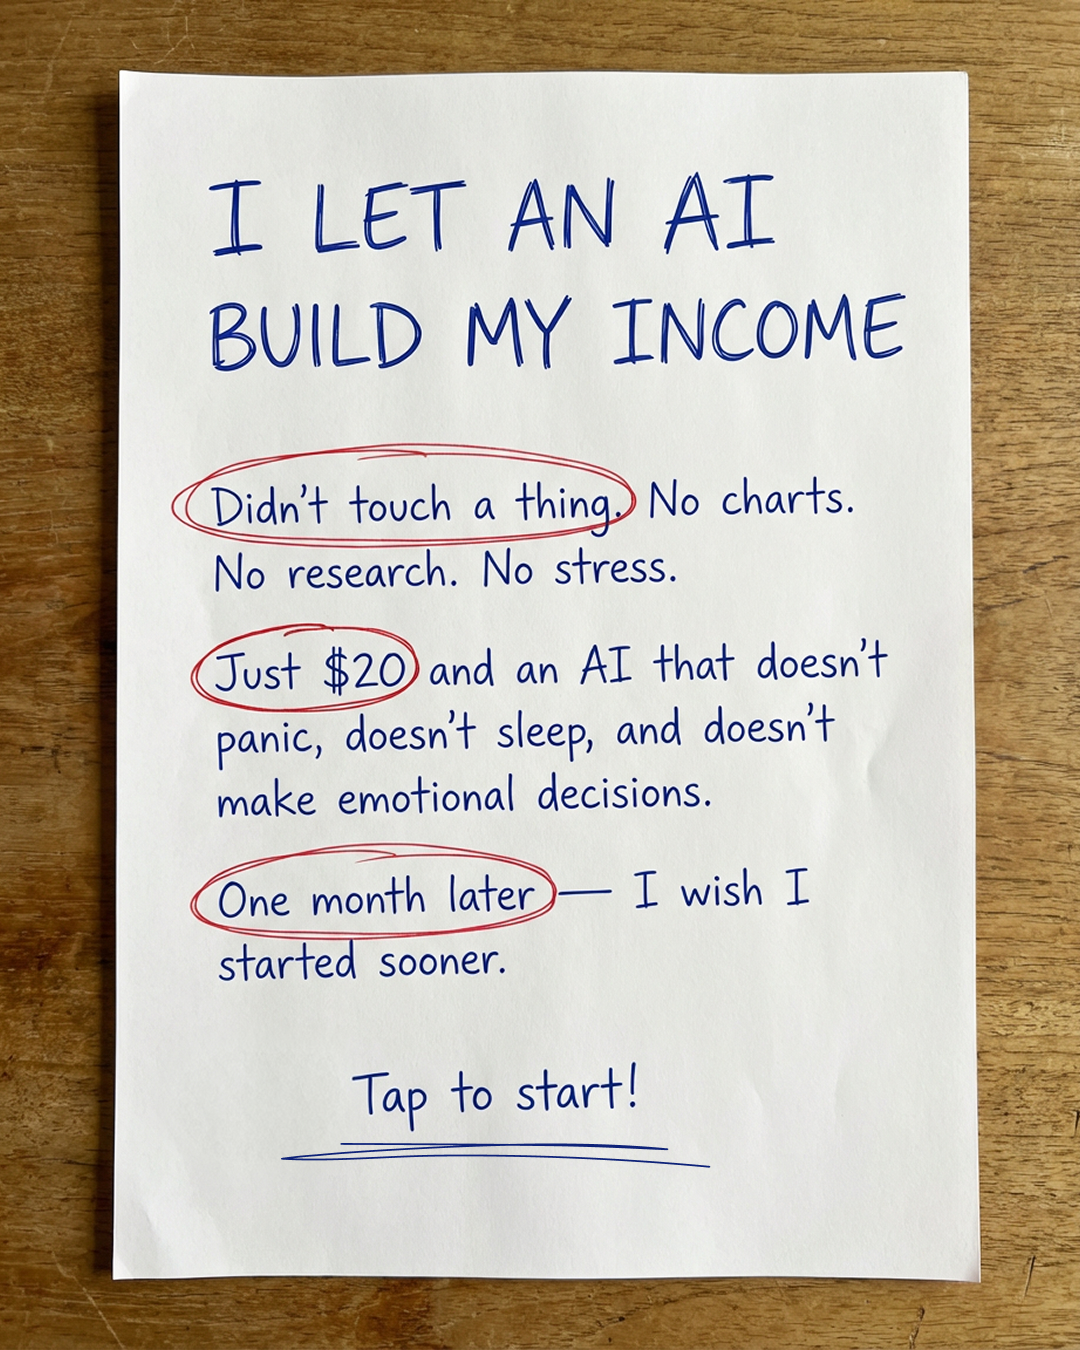 I LET AN AI
BUILD MY INCOME
Didn't touch a thing. No charts.
No research. No stress.
Just $20 and an AI that doesn't
panic, doesn't sleep, and doesn't
make emotional decisions.
One month later — I wish I
started sooner.
Tap to start!